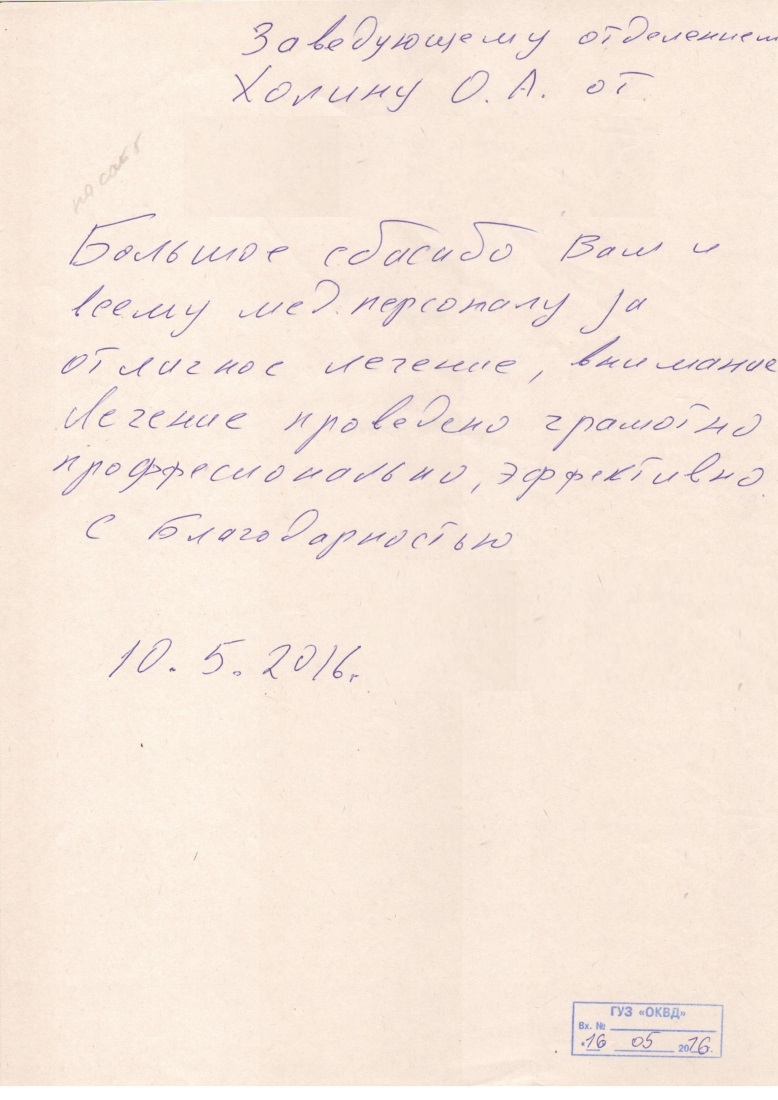 Заведующему отделением
Холину О. А. от
Большое сбасибо Вам и
всему мед. персоналу за
отличное лечение, внимание
Лечение проведено грамотно
проффесионально, эффективно
С благодарностью
10. 5. 2016.
ГУЗ «ОКВД»
Вх. №
«16 05 2016.